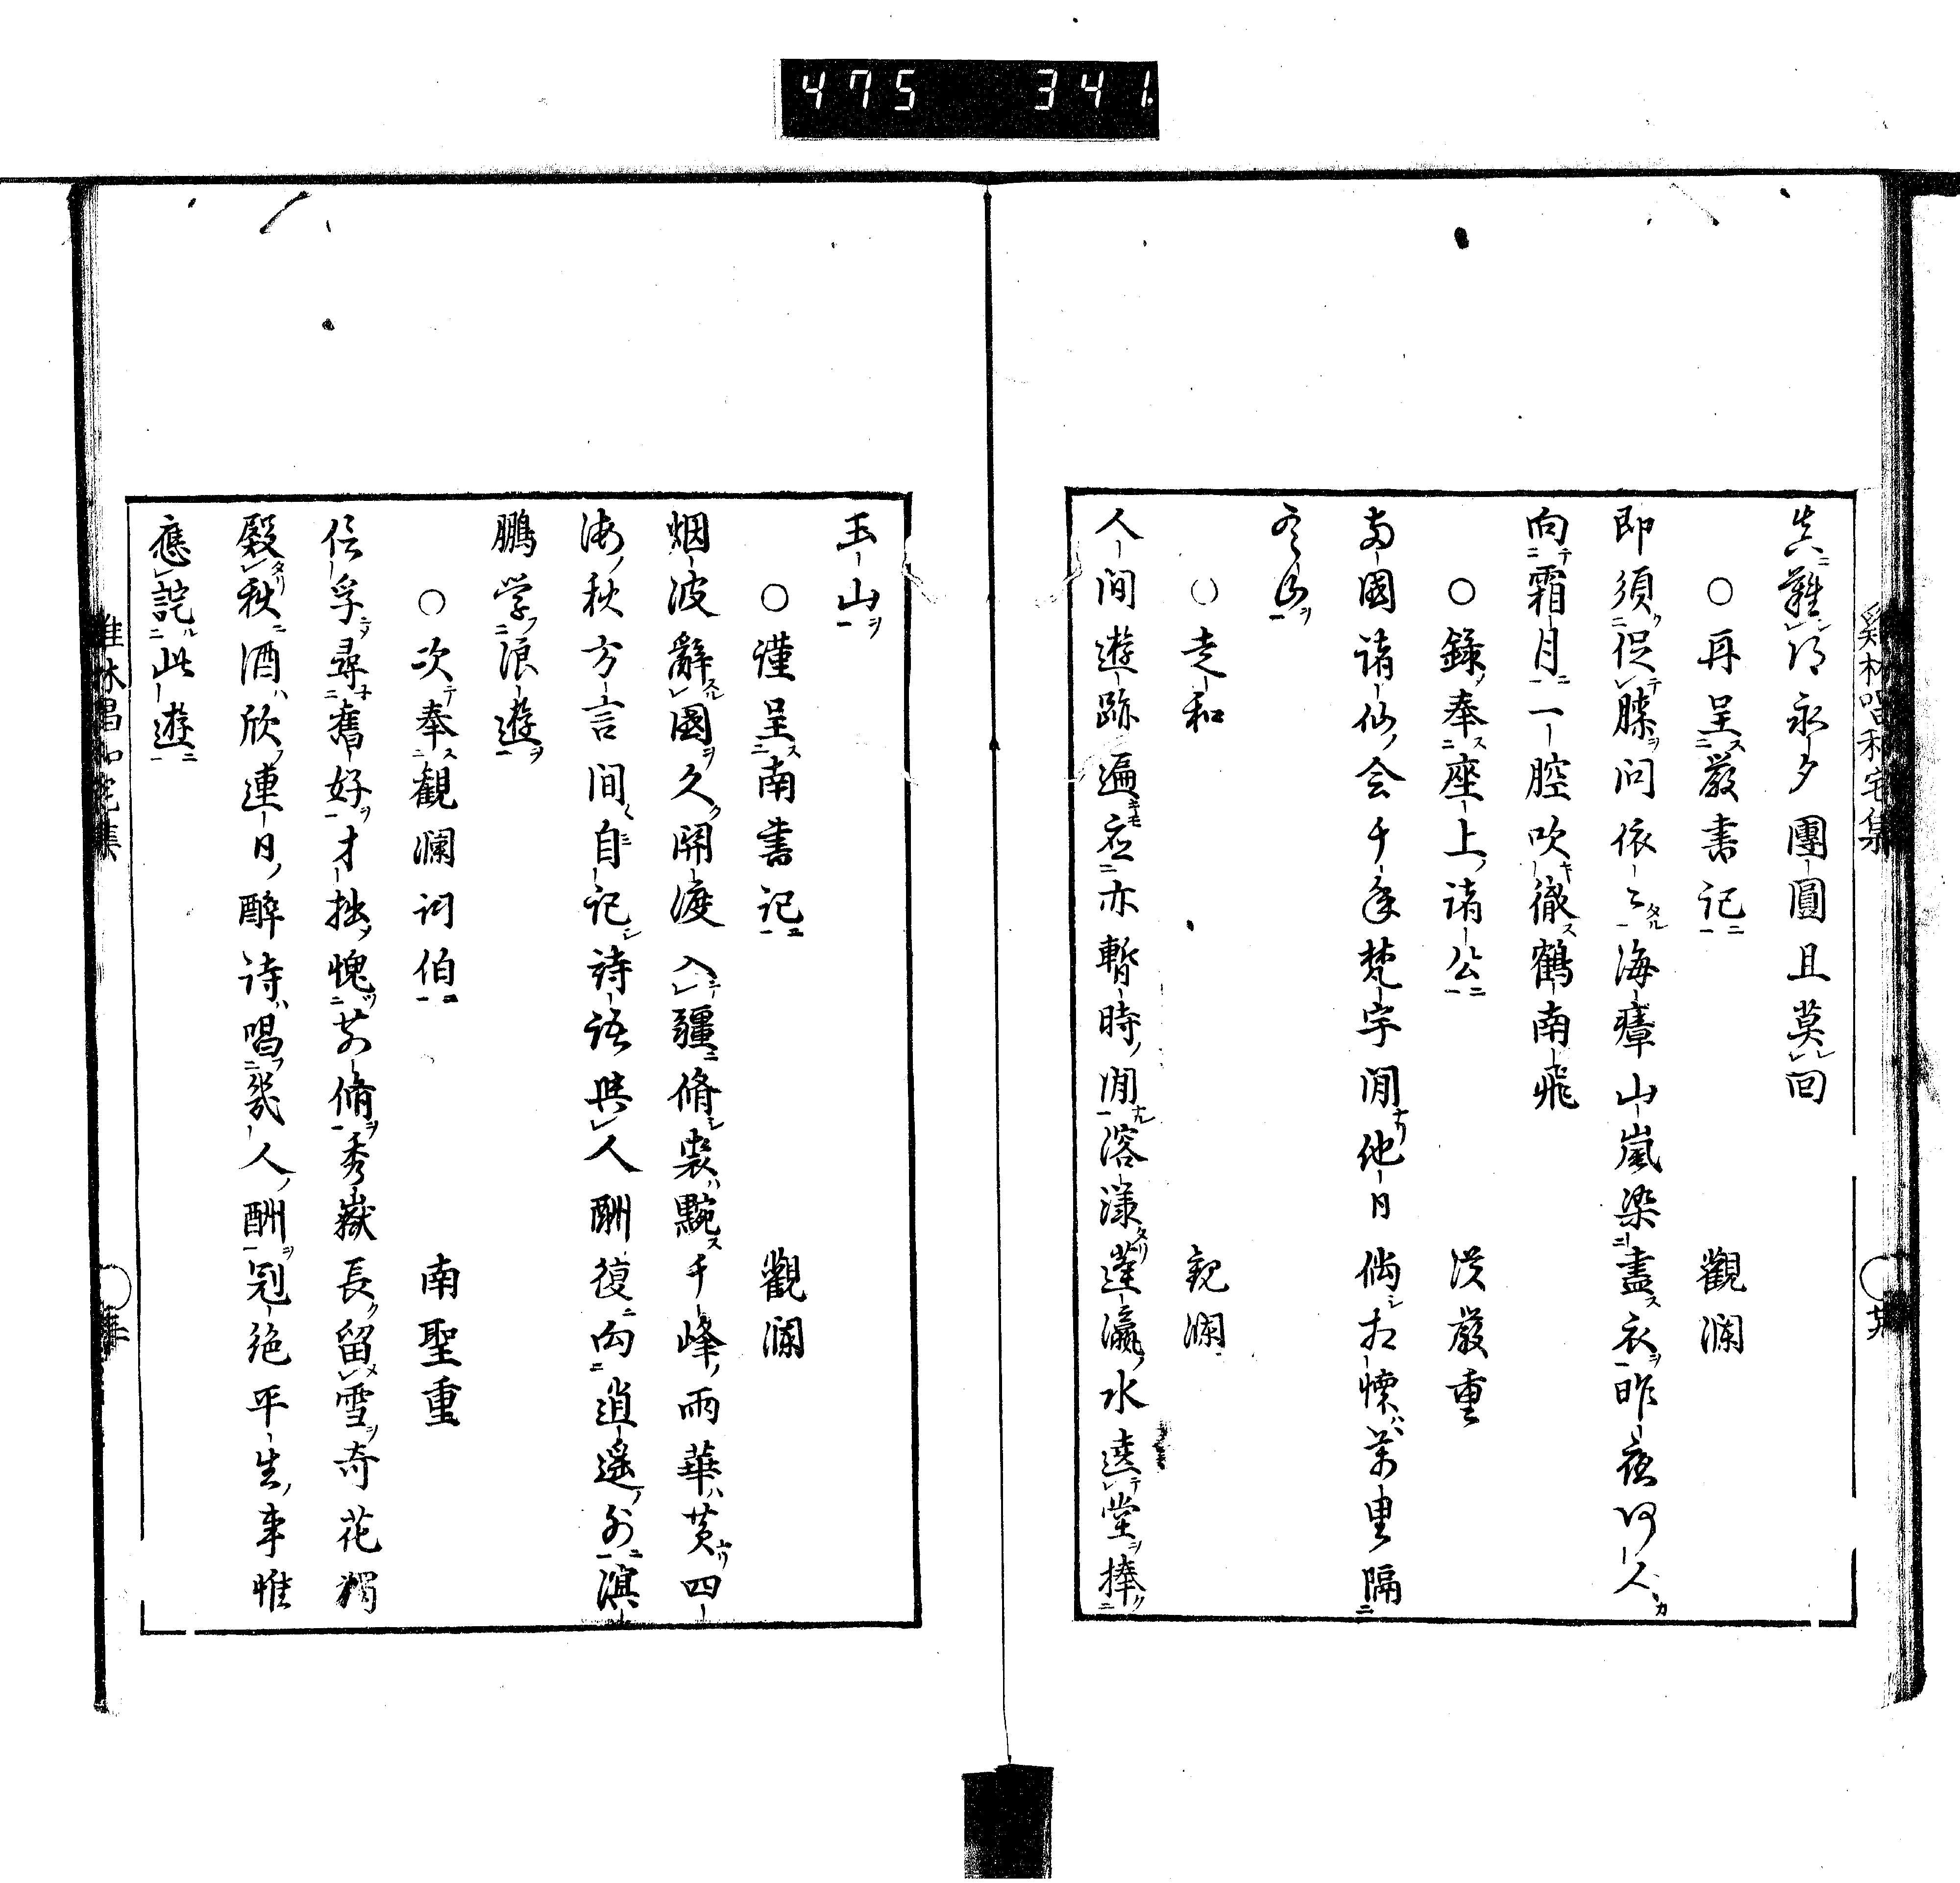 475 341
真難得永夕團圓且莫回
○再呈嚴書記 觀瀾
即須促膝問依〻海瘴山嵐染盡衣昨夜何人
向霜月一腔吹徹鶴南飛
○錄奉座上諸公 漢嚴重
兩國諸仙会千年梵宇閒他日倘相懷萬里隔
名山
○走和 観瀾
人間遊跡遍在亦暫時閒溶漾蓬瀛水遶堂捧
玉山
○謹呈南書記 觀瀾
烟波辭國久開渡入疆脩裳點千峰雨華黄四
海秋方言間自記詩語與人酬復向逍遥外溟
鵬学浪遊
○次奉觀瀾詞伯 南聖重
信孚尋舊好才拙愧前脩秀嶽長留雪奇花獨
殿秋酒欣連日醉詩唱幾人酬冠絶平生事惟
應詫此遊
雞林唱和